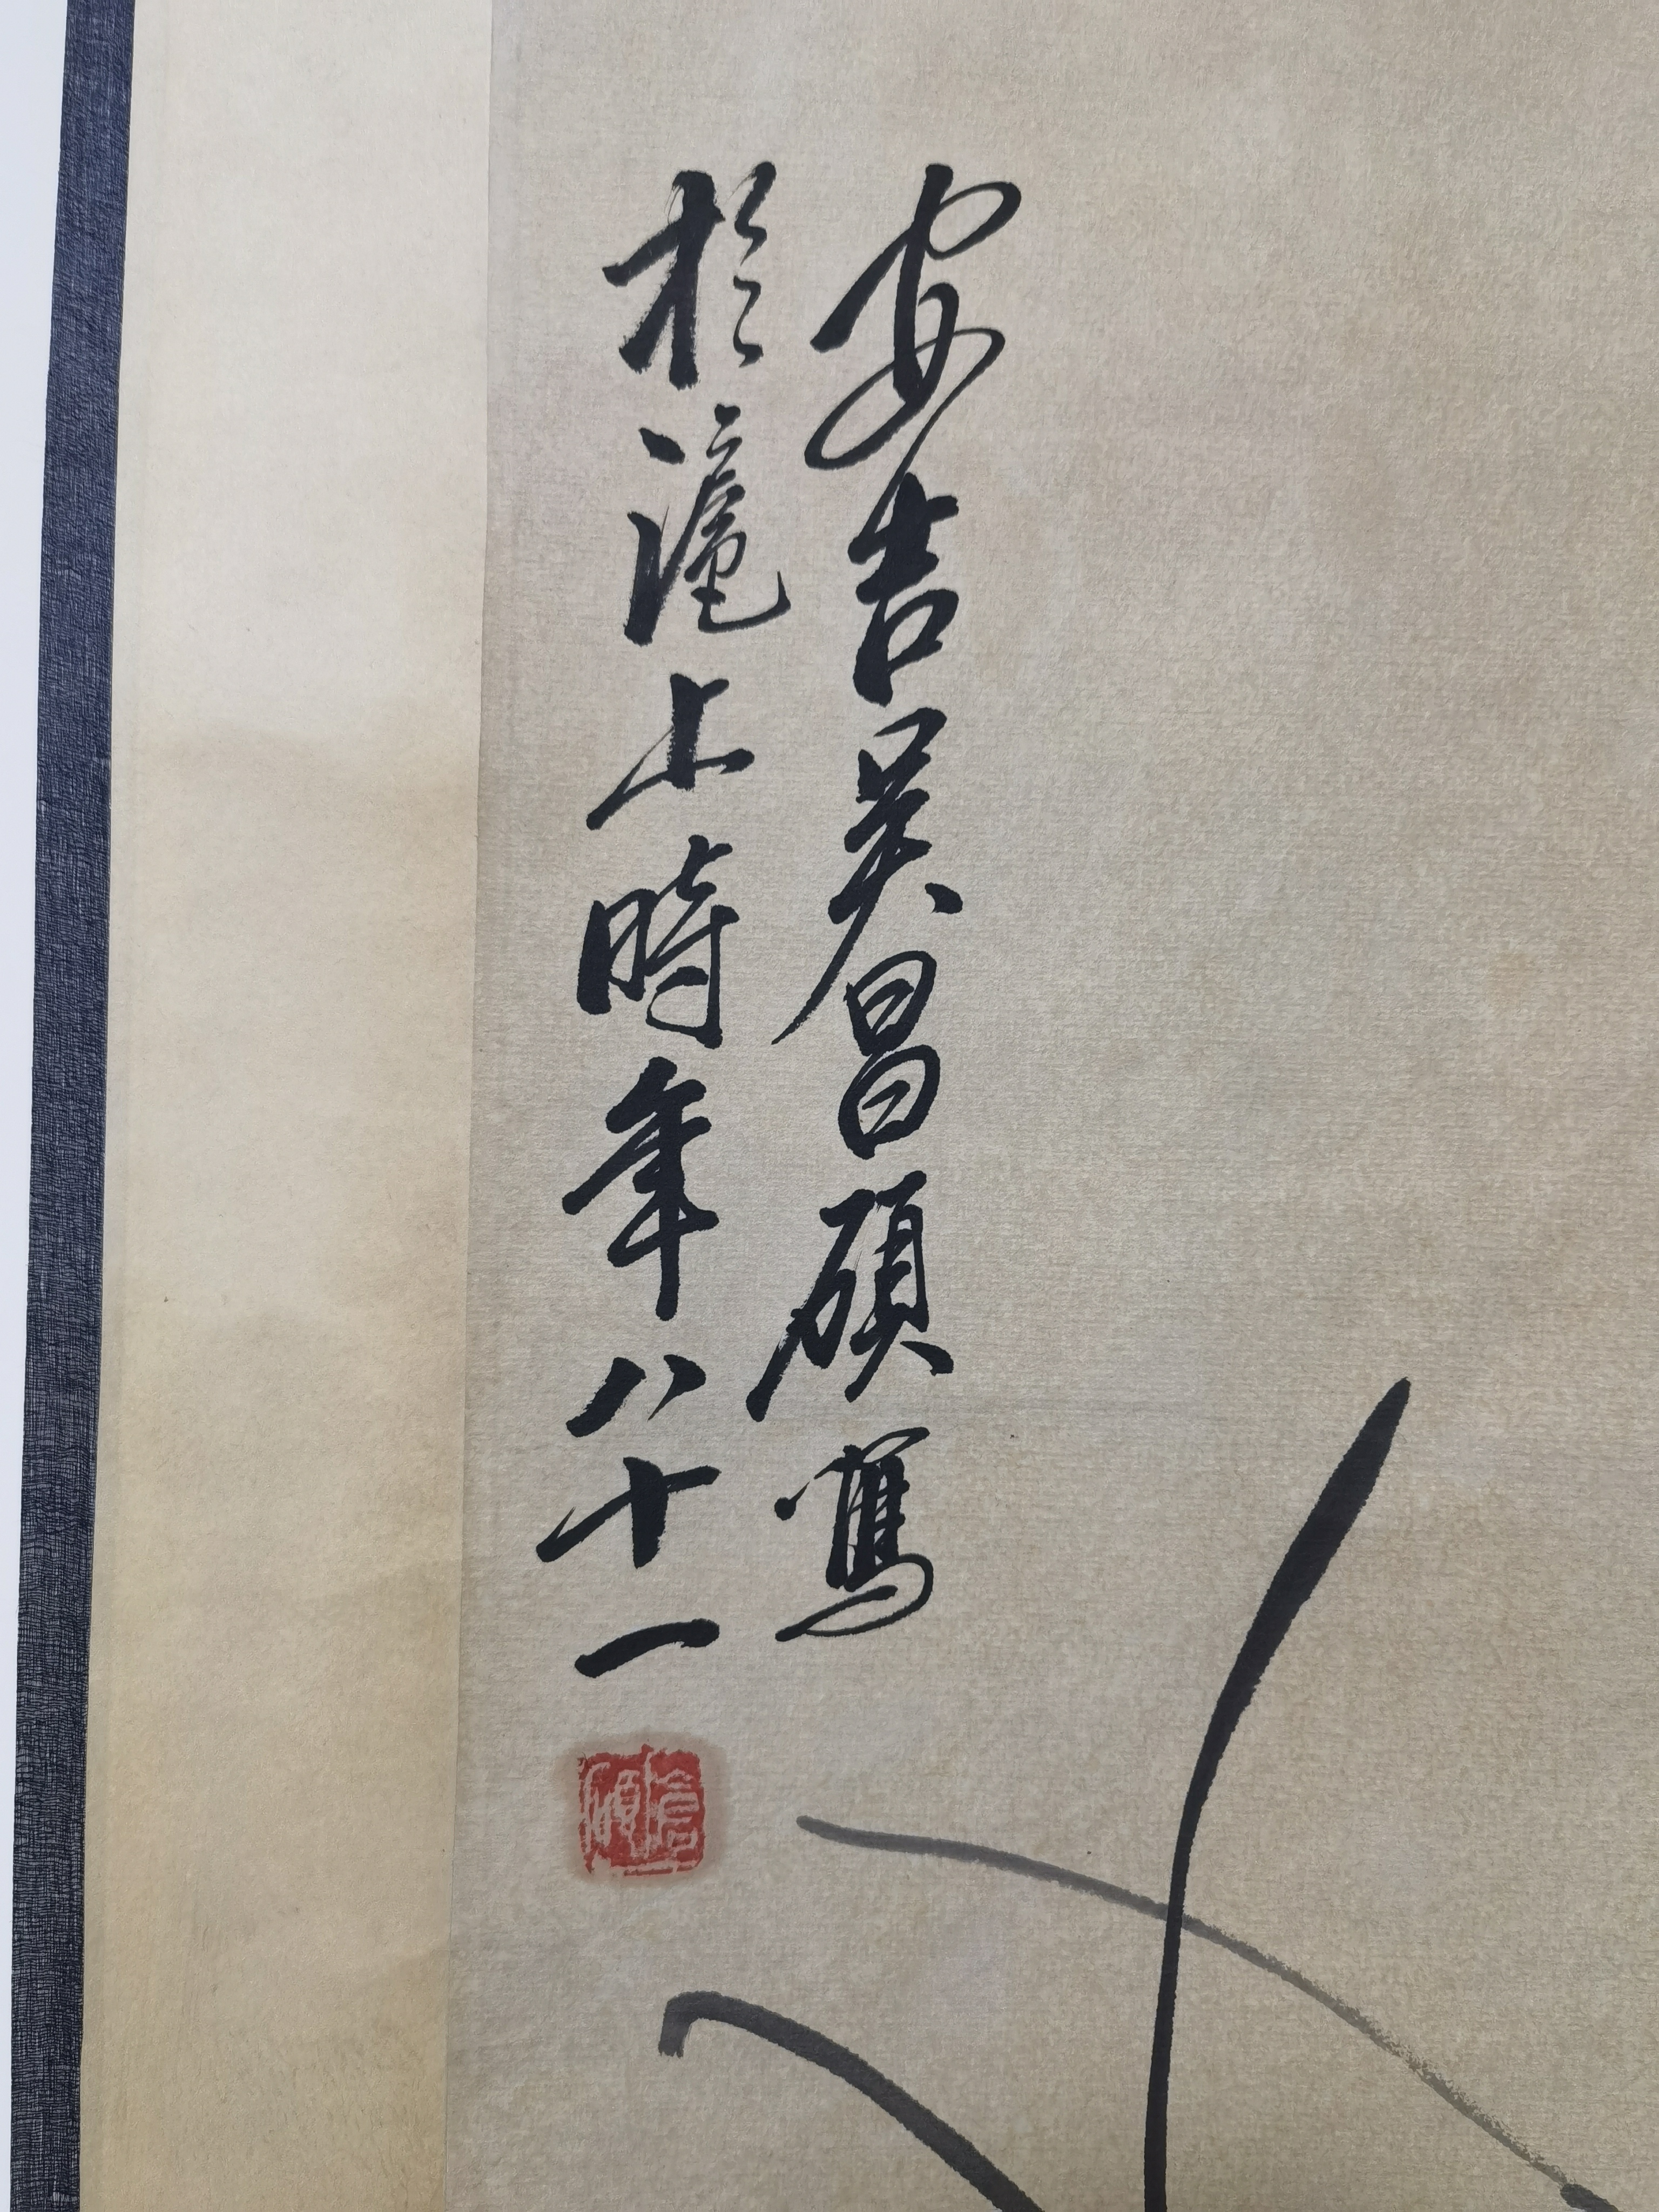 安吉吴昌碩寫
於滬上時年八十一
倉碩